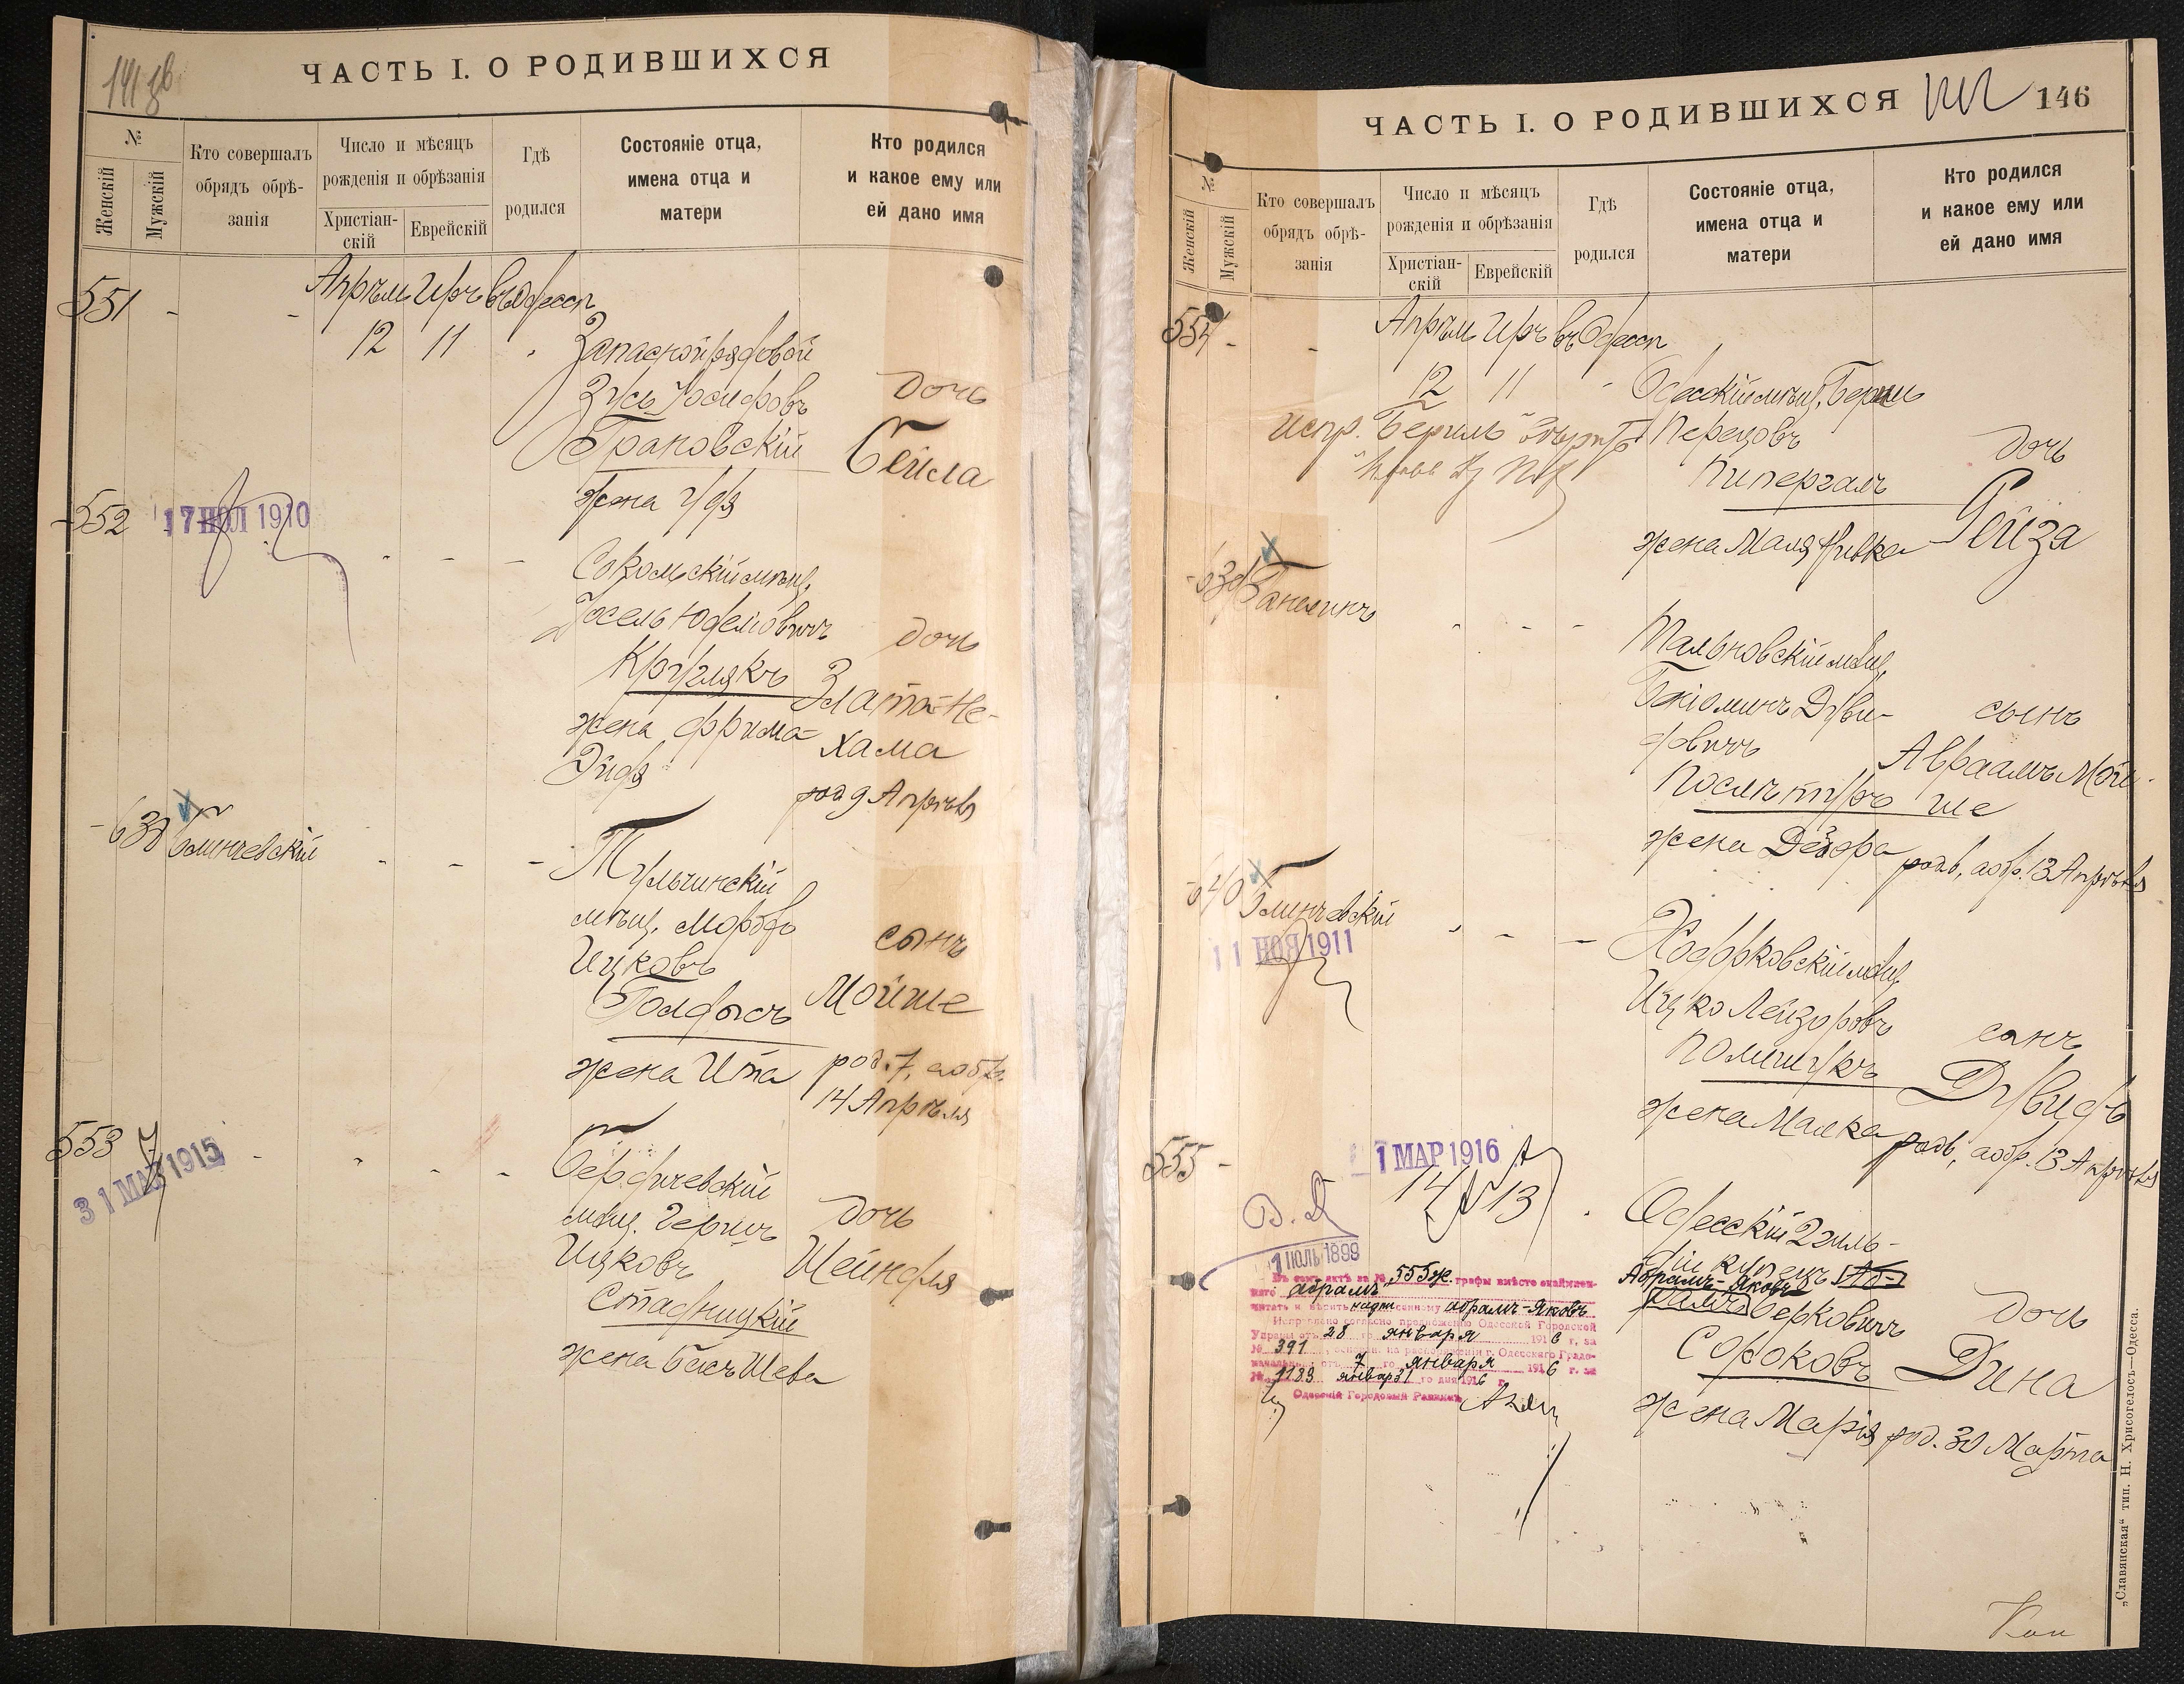 ЧАСТЬ I. О РОДИВШИХСЯ
№
Женскій
Мужскій
Кто совершалъ
обрядъ обрѣ-
занія
Число и мѣсяцъ
рожденія и обрѣзанія
Христіан-
скій
Еврейскій
Гдѣ
родился
Состояніе отца,
имена отца и
матери
Кто родился
и какое ему или
ей дано имя
551 - -
Апрѣль Иръ въ Одессѣ
12 11
Запасной рядовой
Зусь Іосифовъ
Грановскій
жена
дочь
Бейла
552
17 ИЮЛ 1910
Сокольскій мѣщ.
Іосель Юделевичъ
Кругляк​ъ
жена Фрима-
дочь
Злата-Не-
хама
род 9 Апрѣля
638
Тульчинскій
мѣщ.
Ицковъ
Голфысъ
жена Ита
сынъ
Мойше
род. 7, а обр.
14 Апрѣля
553
31 МАЯ 1915
Бердичевскій
мѣщ. Герпи​ъ
Ицковъ
жена Бася Шева
дочь
Шейндля
ЧАСТЬ I. О РОДИВШИХСЯ
146
№
Женскій
Мужскій
Кто совершалъ
обрядъ обрѣ-
занія
Число и мѣсяцъ
рожденія и обрѣзанія
Христіан-
скій
Еврейскій
Гдѣ
родился
Состояніе отца,
имена отца и
матери
Кто родился
и какое ему или
ей дано имя
554 - -
Апрѣль Иръ въ Одессѣ
12 11
Одесскій мѣщ. Берль
Перецовъ
Пипергалъ
жена Маля Ривка
дочь
Рейза
Испр. "Берль"
639
Тальновскій мѣщ.
Беніоминъ Дуви-
довичъ
жена Двойра
сынъ
Авраамъ Мой-
ше
родъ, а обр. 13 Апрѣля
640
11 НОЯ 1911
Ходорковскій мѣщ.
Ицко Лейзоровъ
Полищукъ
жена Малка
сынъ
Дувидъ
родъ, а обр. 13 Апрѣля
555 -
1 МАР 1916
14 13
1 ІЮЛЬ 1899
Одесскій 2 гиль-
діи купецъ Аб-
Абрамъ-Яковъ
рамъ Берковичъ
Сороковъ
жена Марія
дочь
Дина
род. 30 Марта
Въ семъ актѣ за № 555 ж. графы вмѣсто окаймлен-
наго Абрамъ
читать и вѣрить надписанному Абрамъ-Яковъ
Исправлено согласно предложенію Одесской Городской
Управы отъ 28 го января 1916 г. за
№ 391, основан. на распоряженіи г. Одесскаго Градо-
начальника отъ 7 го января 1916 г. за
№ 1183 января 31 го дня 1916 г.
Одесскій Городовой Раввинъ
„Славянская“ тип. Н. Хрисогелосъ—Одесса.